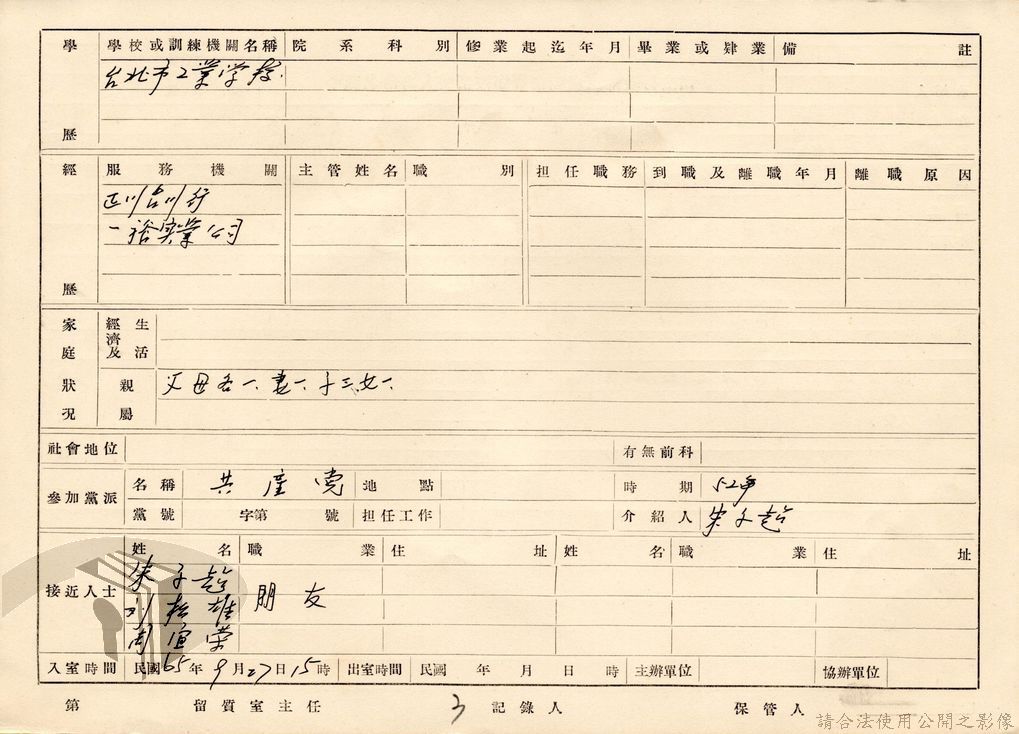 學歷 學校或訓練機關名稱 院系科別 修業起迄年月 畢業或肄業 備註
台北市工業学校.
經歷 服務機關 主管姓名 職別 担任職務 到職及離職年月 離職原因
一裕実業公司
家庭狀況 經濟及生活
親屬 父母各一、妻一、子三、女一、
社會地位 有無前科
參加黨派 名稱 共產党 地點 時期 52年
黨號 字第 號 担任工作 介紹人 朱子超
接近人士 姓名 職業 住址 姓名 職業 住址
朱子超
刘松雄 朋友
周宜荣
入室時間 民國65年9月27日15時 出室時間 民國 年 月 日 時 主辦單位 協辦單位
第 留質室主任 記錄人 保管人
請合法使用公開之影像